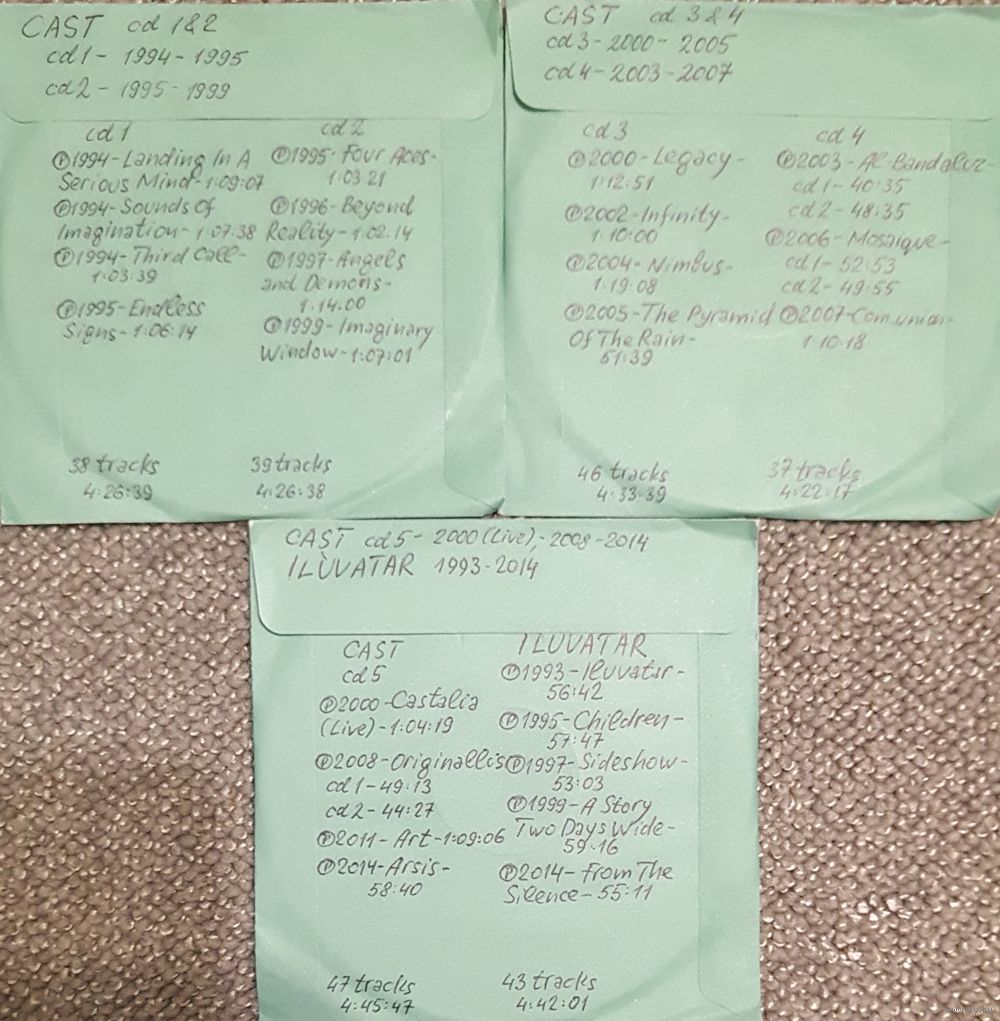 CAST cd 1&2
cd1 - 1994 - 1995
cd2 - 1995 - 1999
cd1
Ⓟ1994-Landing In A
Serious Mind-1:09:07
Ⓟ1994-Sounds Of
Imagination-1:07:38
Ⓟ1994-Third Call-
1:03:39
Ⓟ1995-Endless
Signs-1:06:14
38 tracks
4:26:39
cd2
Ⓟ1995-Four Aces-
1:03:21
Ⓟ1996-Beyond
Reality-1:02:14
Ⓟ1997-Angels
and Demons-
1:14:00
Ⓟ1999-Imaginary
Window-1:07:01
39 tracks
4:26:38
CAST cd 3&4
cd3-2000-2005
cd4-2003-2007
cd3
Ⓟ2000-Legacy-
1:12:51
Ⓟ2002-Infinity-
1:10:00
Ⓟ2004-Nimbus-
1:19:08
Ⓟ2005-The Pyramid
Of The Rain-
51:39
46 tracks
4:33:39
cd4
Ⓟ2003-Al-Bandaluz-
cd1-40:35
cd2-48:35
Ⓟ2006-Mosaique-
cd1-52:53
cd2-49:55
Ⓟ2007-Com.union-
1:10:18
37 tracks
4:22:17
CAST cd5-2000(Live),-2008-2014
ILUVATAR 1993-2014
CAST
cd5
Ⓟ2000-Castalia
(Live)-1:04:19
Ⓟ2008-Originallis
cd1-49:13
cd2-44:27
Ⓟ2011-Art-1:09:06
Ⓟ2014-Arsis-
58:40
47 tracks
4:45:47
ILUVATAR
Ⓟ1993-Iluvatar-
56:42
Ⓟ1995-Children-
57:47
Ⓟ1997-Sideshow-
53:03
Ⓟ1999-A Story
Two Days Wide-
59:16
Ⓟ2014-From The
Silence-55:11
43 tracks
4:42:01